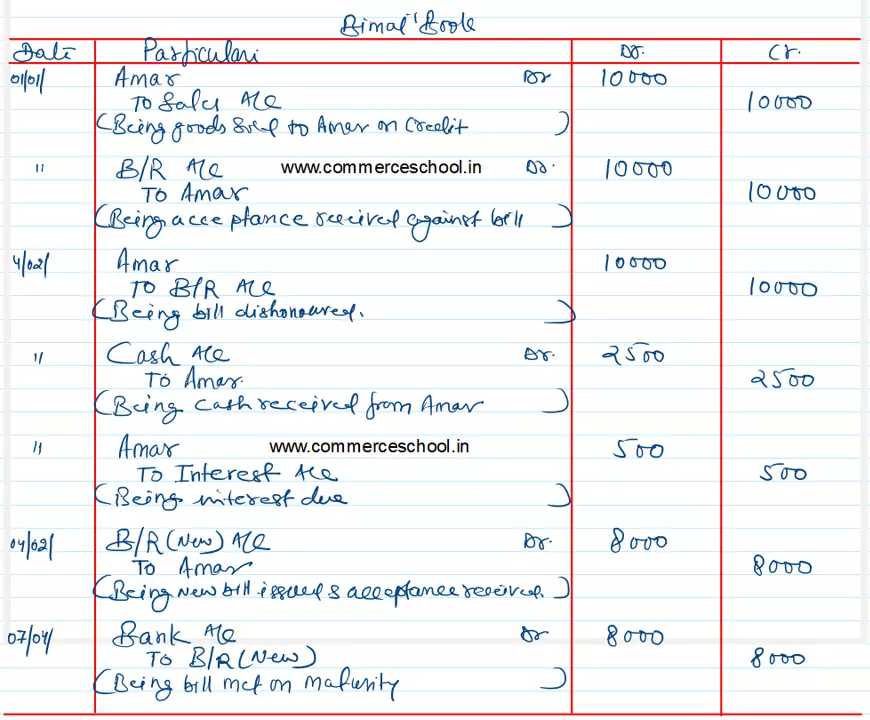 Bimal' Book
Date Particulars Dr. Cr.
01/01/ Amar Dr 10000
To Sales A/c 10000
(Being goods sold to Amar on credit)
" B/R A/c www.commerceschool.in Dr. 10000
To Amar 10000
(Being acceptance received against bill)
4/02/ Amar 10000
To B/R A/c 10000
(Being bill dishonoured.)
" Cash A/c Dr. 2500
To Amar. 2500
(Being cash received from Amar)
" Amar www.commerceschool.in 500
To Interest A/c 500
(Being interest due)
04/02/ B/R (New) A/c Dr. 8000
To Amar 8000
(Being new bill issued & acceptance received.)
07/04/ Bank A/c Dr 8000
To B/R (New) 8000
(Being bill met on maturity)